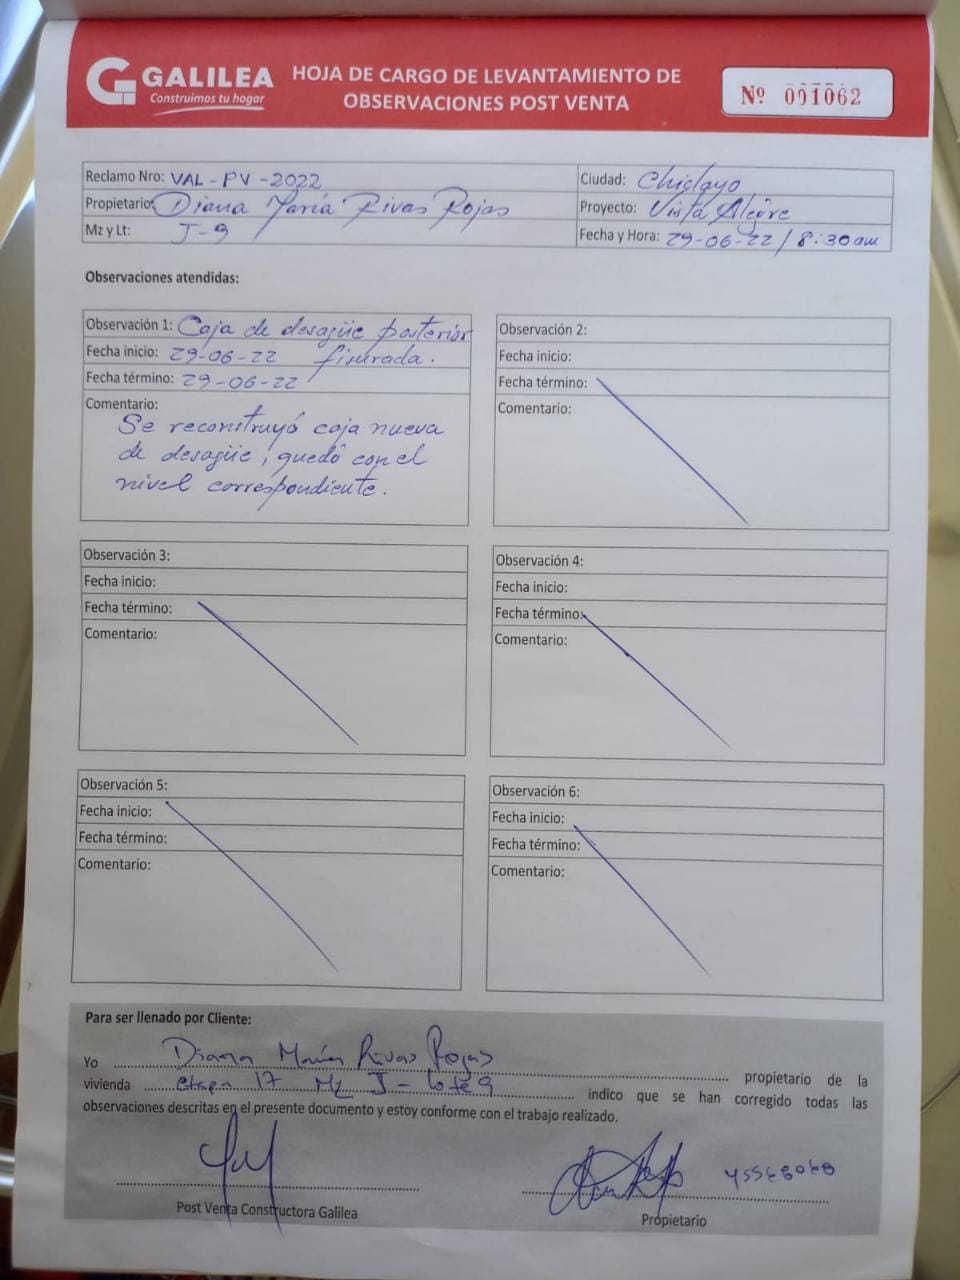 GALILEA
Construimos tu hogar
HOJA DE CARGO DE LEVANTAMIENTO DE
OBSERVACIONES POST VENTA
Nº 001062
Reclamo Nro: VAL-PV-2022
Ciudad: Chiclayo
Propietario: Diana María Rivas Rojas
Proyecto: Vista Alegre
Mz y Lt: J-9
Fecha y Hora: 29-06-22 / 8:30am
Observaciones atendidas:
Observación 1: Caja de desagüe posterior
Fecha inicio: 29-06-22 fisurada.
Fecha término: 29-06-22
Comentario:
Se reconstruyó caja nueva
de desagüe, quedó con el
nivel correspondiente.
Observación 2:
Fecha inicio:
Fecha término:
Comentario:
Observación 3:
Fecha inicio:
Fecha término:
Comentario:
Observación 4:
Fecha inicio:
Fecha término:
Comentario:
Observación 5:
Fecha inicio:
Fecha término:
Comentario:
Observación 6:
Fecha inicio:
Fecha término:
Comentario:
Para ser llenado por Cliente:
Yo Diana María Rivas Rojas propietario de la
vivienda etapa 17 Mz J - lote 9 indico que se han corregido todas las
observaciones descritas en el presente documento y estoy conforme con el trabajo realizado.
Post Venta Constructora Galilea
Propietario